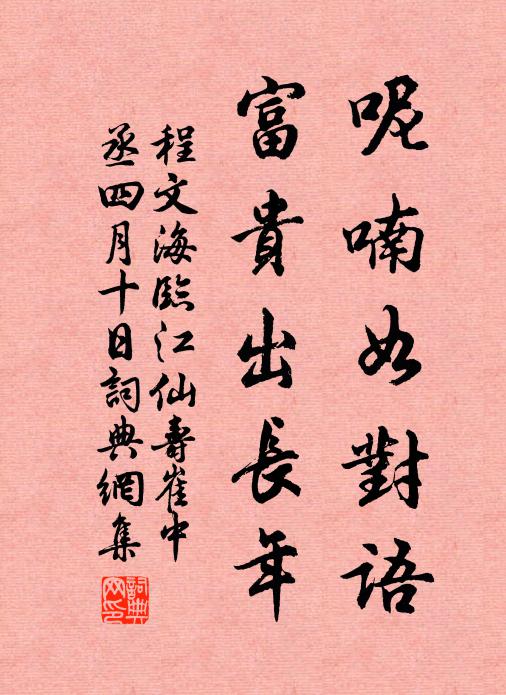 呢喃如對語
富貴出長年
程文海臨江仙壽崔中
丞四月十日詞典網集
詞典網印